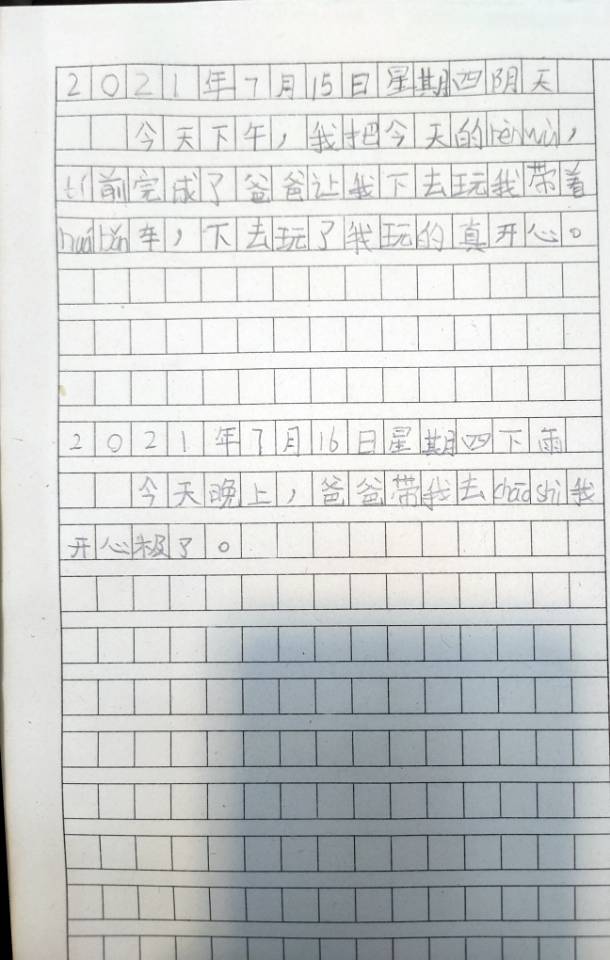 2021年7月15日星期四阴天
今天下午，我把今天的rèn wù，
tí前完成了爸爸让我下去玩我带着
huá bǎn车，下去玩了我玩的真开心。
2021年7月16日星期四下雨
今天晚上，爸爸带我去chāo shì我
开心极了。